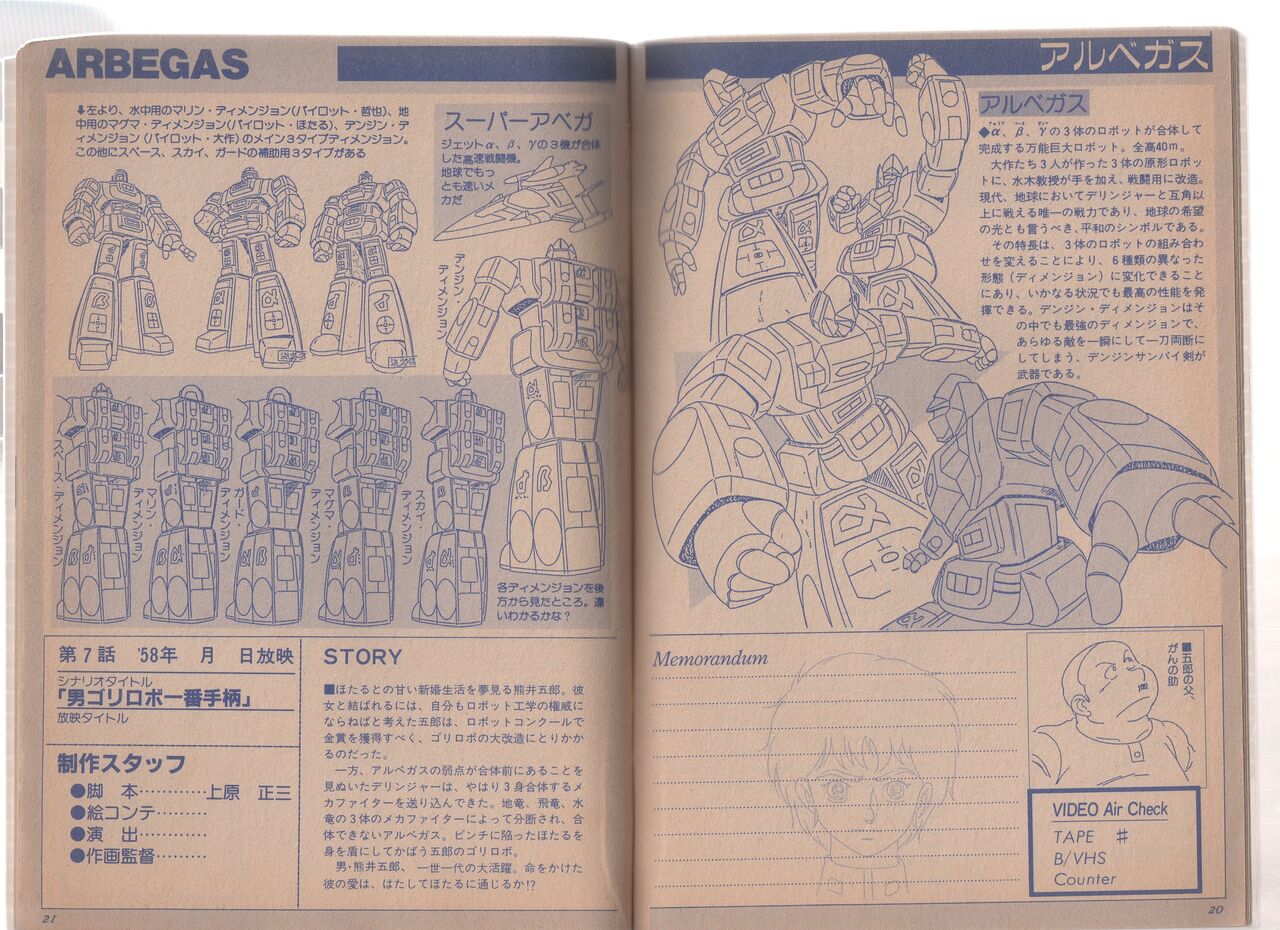 アルベガス
アルベガス
アルファ ベータ ガンマ
◆α、β、γの3体のロボットが合体して
完成する万能巨大ロボット。全高40m。
大作たち3人が作った3体の原形ロボッ
トに、水木教授が手を加え、戦闘用に改造。
現代、地球においてデリンジャーと互角以
上に戦える唯一の戦力であり、地球の希望
の光とも言うべき、平和のシンボルである。
その特長は、3体のロボットの組み合わ
せを変えることにより、6種類の異なった
形態(ディメンジョン)に変化できること
にあり、いかなる状況でも最高の性能を発
揮できる。デンジン・ディメンジョンはそ
の中でも最強のディメンジョンで、
あらゆる敵を一瞬にして一刀両断に
してしまう、デンジンサンバイ剣が
武器である。
α
α
Memorandum
■五郎の父、
がんの助
VIDEO Air Check
TAPE #
B/VHS
Counter
20
ARBEGAS
⬇左より、水中用のマリン・ディメンジョン(パイロット・哲也)、地
中用のマグマ・ディメンジョン(パイロット・ほたる)、デンジン・デ
ィメンジョン(パイロット・大作)のメイン3タイプディメンジョン。
この他にスペース、スカイ、ガードの補助用3タイプがある
スーパーアベガ
ジェットα、β、γの3機が合体
した高速戦闘機。
地球でもっ
とも速いメ
カだ
β
α
デンジン・
ディメンジョン
α
β
スペース・ディメンジョン
マリン・
ディメンジョン
ガード・
ディメンジョン
マグマ・
ディメンジョン
スカイ・
ディメンジョン
各ディメンジョンを後
方から見たところ。違
いわかるかな?
第7話 '58年 月 日放映
シナリオタイトル
「男ゴリロボ一番手柄」
放映タイトル
制作スタッフ
●脚 本…………上原 正三
●絵コンテ………
●演 出…………
●作画監督………
STORY
■ほたるとの甘い新婚生活を夢見る熊井五郎。彼
女と結ばれるには、自分もロボット工学の権威に
ならねばと考えた五郎は、ロボットコンクールで
金賞を獲得すべく、ゴリロボの大改造にとりかか
るのだった。
一方、アルベガスの弱点が合体前にあることを
見ぬいたデリンジャーは、やはり3身合体するメ
カファイターを送り込んできた。地竜、飛竜、水
竜の3体のメカファイターによって分断され、合
体できないアルベガス。ピンチに陥ったほたるを
身を盾にしてかばう五郎のゴリロボ。
男・熊井五郎、一世一代の大活躍。命をかけた
彼の愛は、はたしてほたるに通じるか!?
21